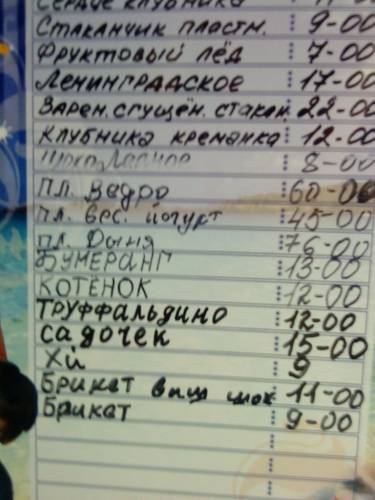 Сердце клубника 11-00
Стаканчик пластм. 9-00
Фруктовый лёд 7-00
Ленинградское 17-00
Варен.сгущён. стакан. 22-00
Клубника креманка 12-00
8-00
Пл. ведро 60-00
Пл. вес. йогурт 45-00
Пл. Дыня 76-00
БУМЕРАНГ 13-00
КОТЁНОК 12-00
ТРУФФАЛЬДИНО 12-00
Садочек 15-00
Хи 9
Брикет виш шок 11-00
Брикет 9-00